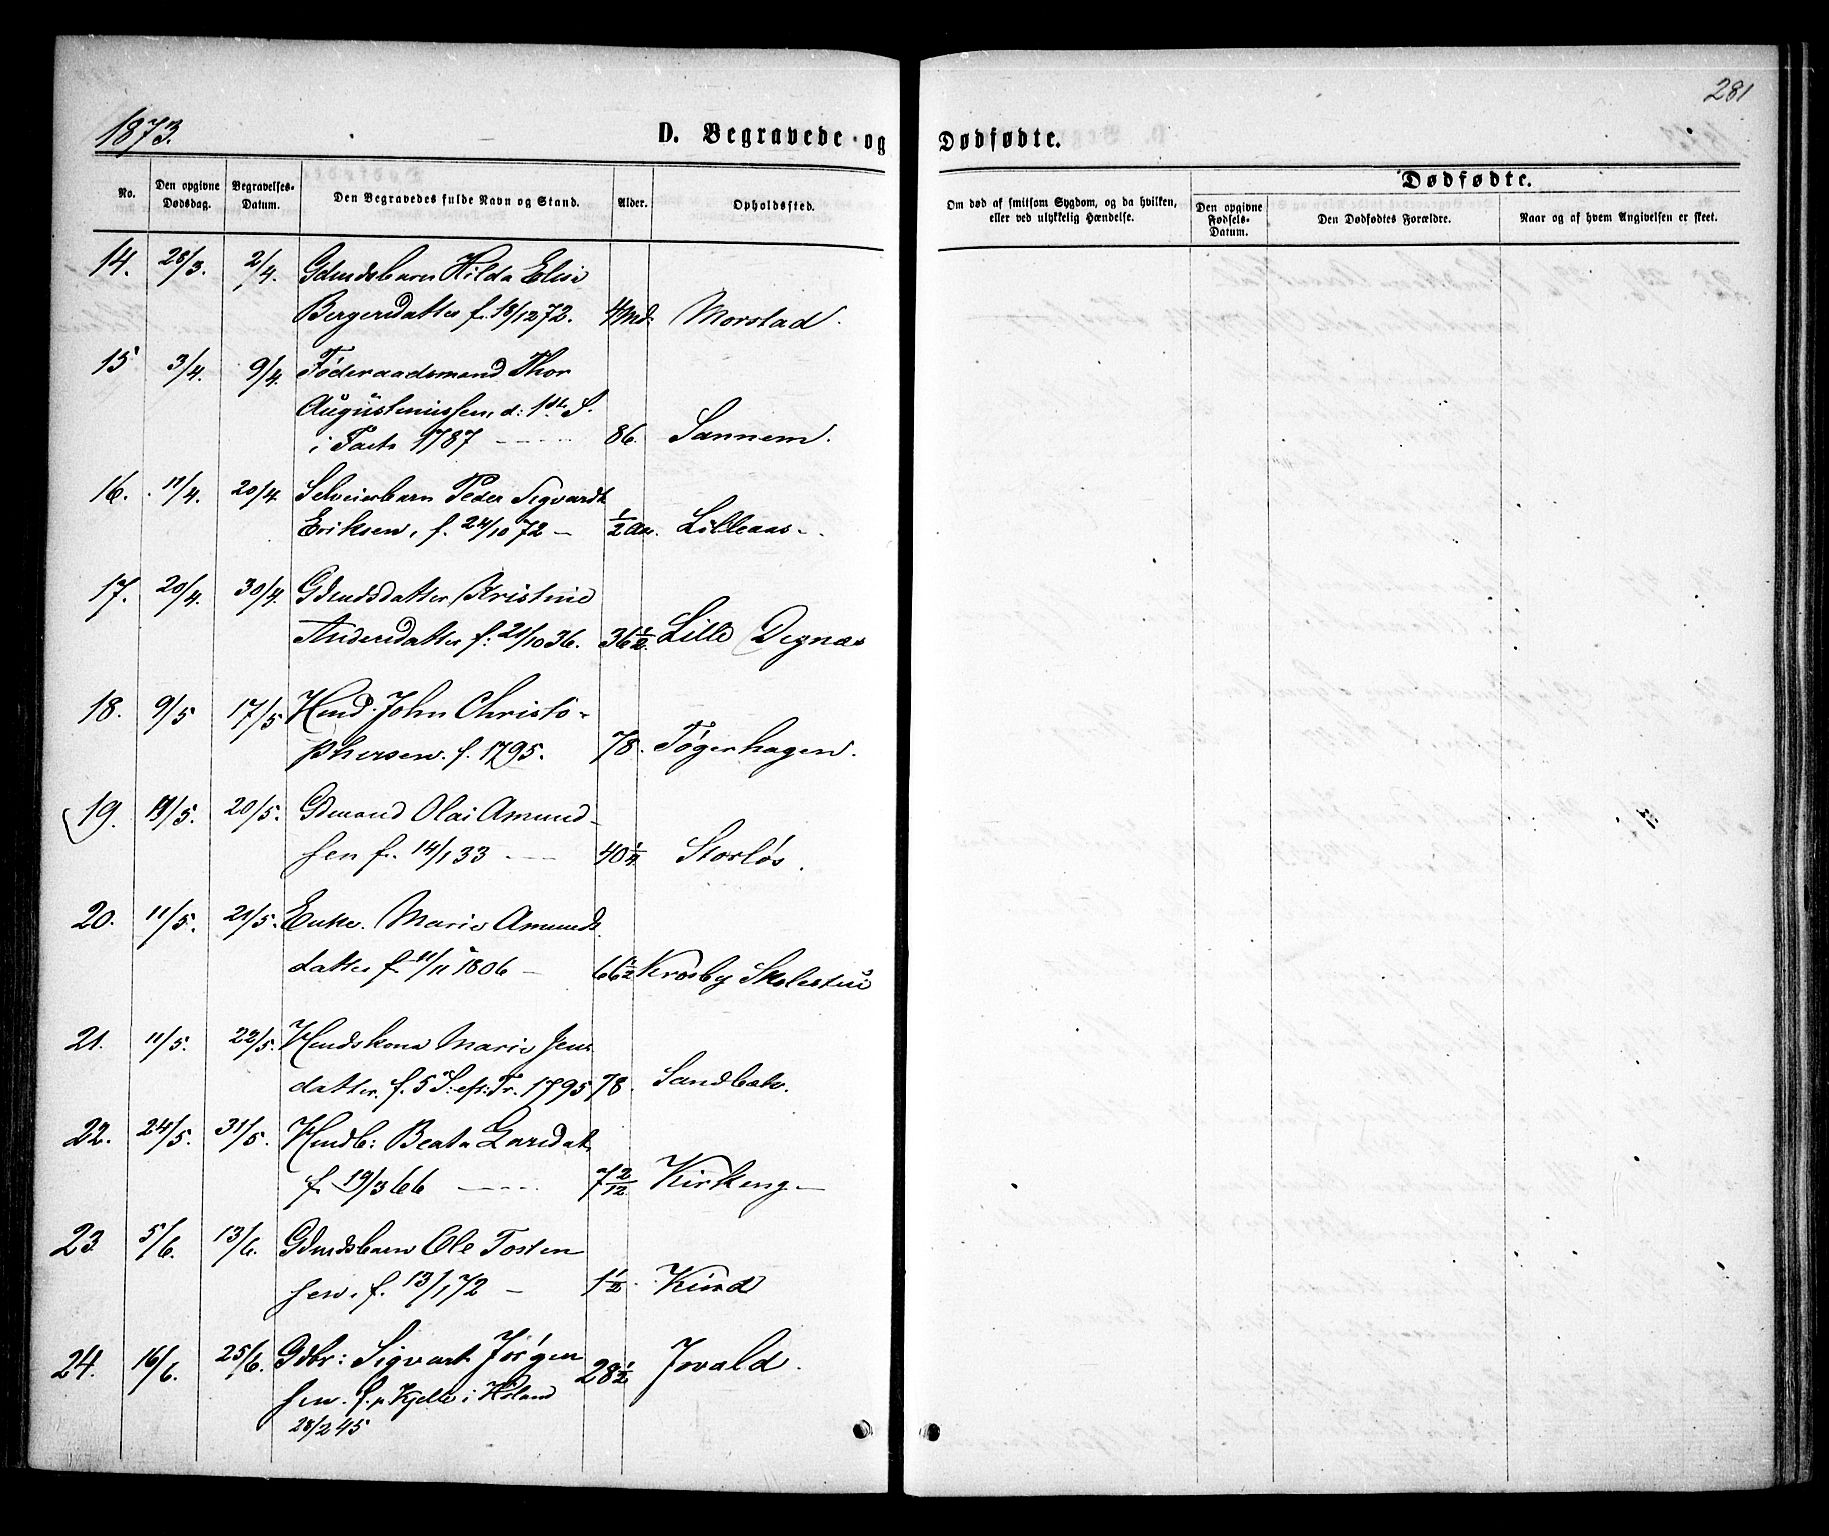 281
1873.
D. Begravede og Dødfødte.
Dødfødte.
No.
Den opgivne Dødsdag.
Begravelses-Datum.
Den Begravedes fulde Navn og Stand.
Alder.
Opholdssted.
Om død af smitsom Sygdom, og da hvilken, eller ved ulykkelig Hændelse.
Den opgivne Fødsels-Datum.
Den Dødfødtes Forældre.
Naar og af hvem Angivelsen er skeet.
14. 28/3. 2/4. Gdmdsbarn Hilda Elise
Bergersdatter f. 18/12 72. 4 Md. Morstad.
15 3/4. 9/4. Føderaadsmand Thor
Augustinussen, d: 1ste S.
i Faste 1787 - - - - 86. Sannem.
16. 11/4. 20/4 Selveierbarn Peder Sigvardt
Eriksen, f. 24/10 72 - 1/2 Aar. Lilleaas.
17. 20/4. 30/4. Gdmdsdatter Kristine
Andersdatter f: 21/10 36. 36 1/2. Lille Degnæs
18. 9/5 17/5 Hmd. John Christo-
phersen. f. 1795. 78. Tøgerhagen.
19. /5. 20/5. Gdmand Olai Amund-
sen f. 14/1 33 - - - 40 1/4 Storløs.
20. 11/5. 21/5. Enke. Marie Amunds.
datter f. 11/11 1806 - 66 1/2 Krosby Skolestue
21. 11/5. 22/5. Hmdskone Marie Jens
datter. f. 5 S. eft. Tr. 1795 78. Sandbæk.
22. 24/5. 31/5. Hmdb: Beata Larsdat.
f. 19/3 66 - - - - 7 2/12 Kirkeng -
23 5/6. 13/6. Gdmdsbarn Ole Tosten
sen. f. 13/1 72 - 1 1/2. Kind
24. 16/6. 25/6. Gdbr: Sigvart Jørgen
sen. f. p. Kjelle i Høland 28 1/2 Jovald.
28/2 45